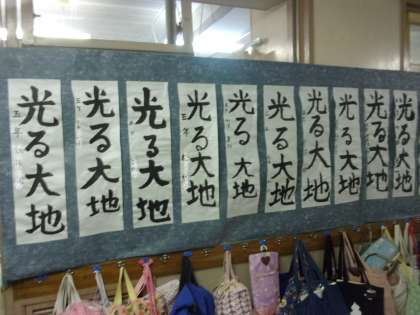 光る大地
五年
光る大地
三年
光る大地
光る大地
三年
光る大地
光る大地
光る大地
光る大地
光る大地
光る大地